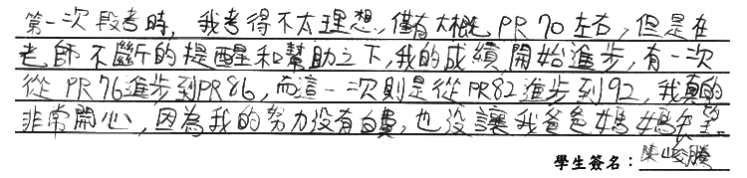 第一次段考時，我考得不太理想，僅有大概PR70左右，但是在
老師不斷的提醒和幫助之下，我的成績開始進步，有一次
從PR76進步到PR86，而這一次則是從PR82進步到92，我真的
非常開心，因為我的努力沒有白費，也沒讓我爸爸媽媽失望。
學生簽名：陳峻騰